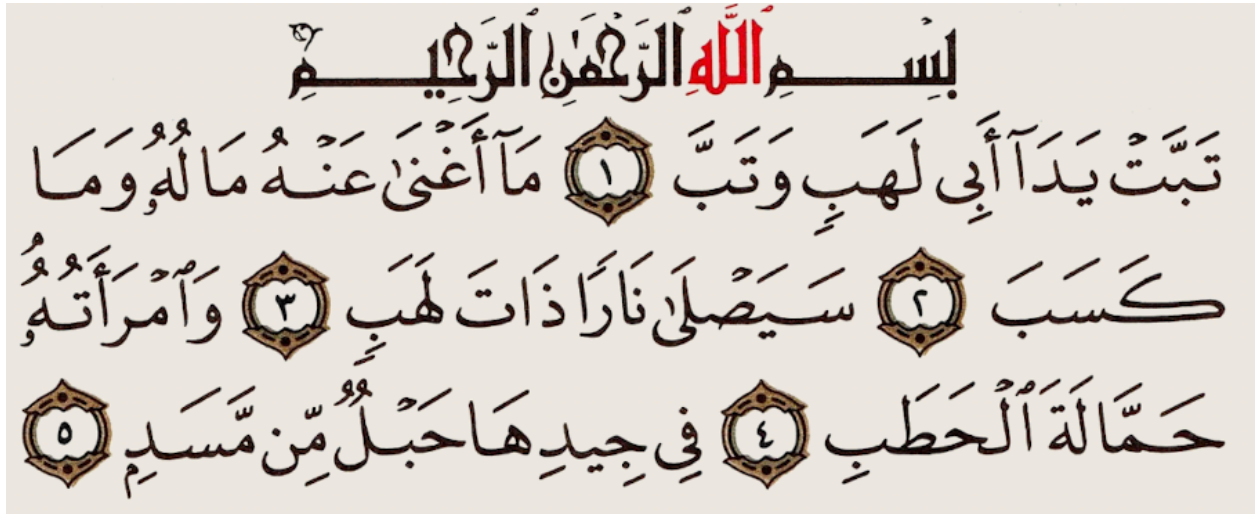 بِسْمِ اللَّهِ الرَّحْمَٰنِ الرَّحِيمِ
تَبَّتْ يَدَآ أَبِى لَهَبٍ وَتَبَّ ١ مَآ أَغْنَىٰ عَنْهُ مَالُهُۥ وَمَا
كَسَبَ ٢ سَيَصْلَىٰ نَارًا ذَاتَ لَهَبٍ ٣ وَٱمْرَأَتُهُۥ
حَمَّالَةَ ٱلْحَطَبِ ٤ فِى جِيدِهَا حَبْلٌ مِّن مَّسَدٍۭ ٥